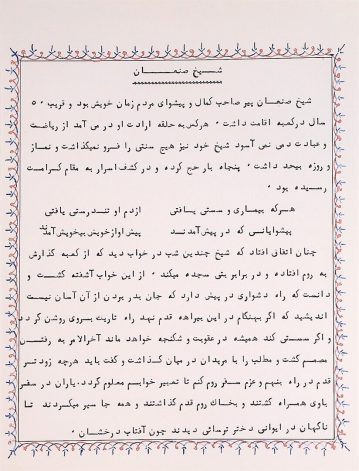 شیخ صنعان
شیخ صنعان پیر صاحب کمال و پیشوای مردم زمان خویش بود و قریب ۵۰
سال در کعبه اقامت داشت ۰ هرکس به حلقه ارادت او در می آمد از ریاضت
و عبادت دمی نمی آسود شیخ خود نیز هیچ سنتی را فرو نمیگذاشت و نماز
و روزه بیحد داشت ۰ پنجاه بار حج کرده و در کشف اسرار به مقام کرامت
رسیده بود ۰
هرکه بیماری و سستی یافتی ازدم او تندرستی یافتی
پیشوایانی که در پیش آمدند پیش او از خویش بیخویش آمدند
چنان اتفاق افتاد که شیخ چندین شب در خواب دید که از کعبه گذارش
به روم افتاده و در برابر بتی سجده میکند ۰ از این خواب آشفته گشت و
دانست که راه دشواری در پیش دارد که جان بدر بردن از آن آسان نیست
اندیشید که اگر بهنگام در این بیراهه قدم نهد راه تاریک بروی روشن گردد
و اگر سستی کند همیشه در عقوبت و شکنجه خواهد ماند آخرالامر به رفتن
مصمم گشت و مطلب را با مریدان در میان گذاشت و گفت باید هرچه زودتر
قدم در راه بنهیم و عزم سفر روم کنم تا تعبیر خوابم معلوم گردد. یاران در سفر
باوی همراه گشتند و بخاک روم قدم گذاشتند و همه جا سیر میکردند تا
ناگهان در ایوانی دختر ترسائی دیدند چون آفتاب درخشان ۰